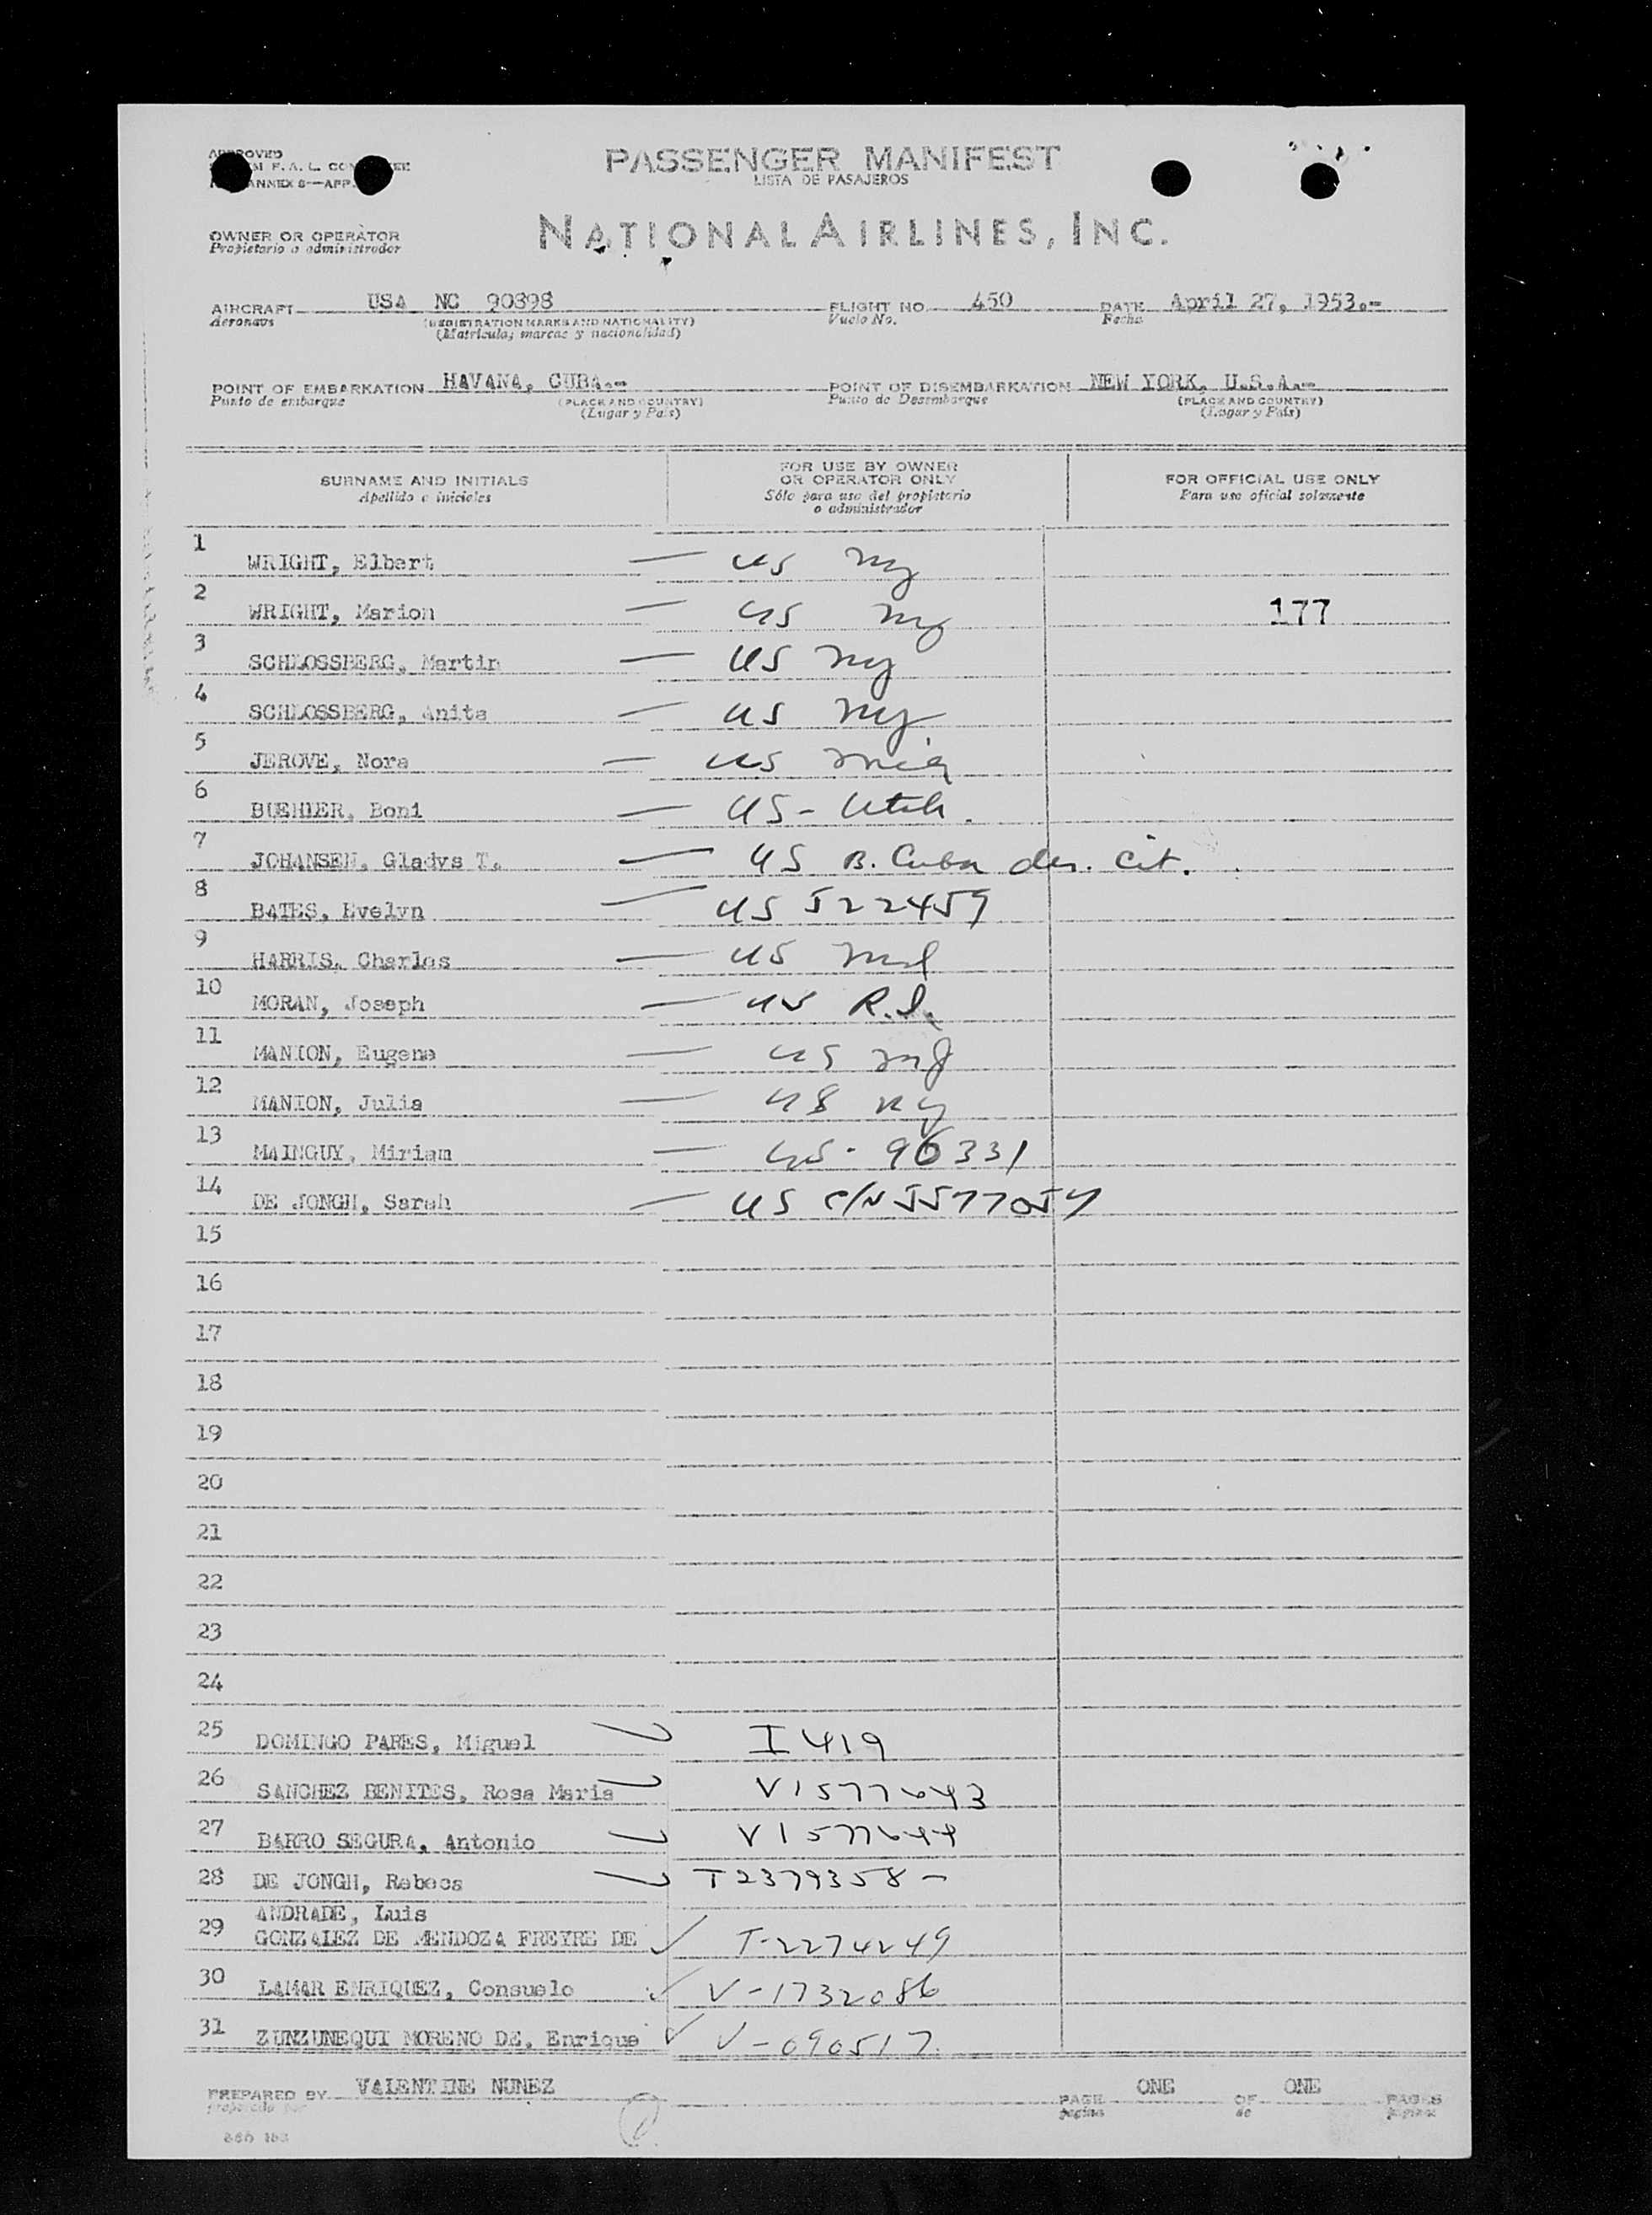 APPROVED
F. A. L. COMMITTEE
ANNEX 8—APP.
PASSENGER MANIFEST
LISTA DE PASAJEROS
OWNER OR OPERATOR
Propietario o administrador
NATIONAL AIRLINES, INC.
AIRCRAFT USA NC 90898 FLIGHT NO. 450 DATE April 27, 1953.-
Aeronave (REGISTRATION MARKS AND NATIONALITY) Vuelo No. Fecha
(Matricula; marcas y nacionalidad)
POINT OF EMBARKATION HAVANA, CUBA.- POINT OF DISEMBARKATION NEW YORK, U.S.A.-
Punto de embarque (PLACE AND COUNTRY) Punto de Desembarque (PLACE AND COUNTRY)
(Lugar y País) (Lugar y País)
SURNAME AND INITIALS
Apellido e iniciales
FOR USE BY OWNER
OR OPERATOR ONLY
Sólo para uso del propietario
o administrador
FOR OFFICIAL USE ONLY
Para uso oficial solamente
1 WRIGHT, Elbert — US NY
2 WRIGHT, Marion — US NY 177
3 SCHLOSSBERG, Martin — US NY
4 SCHLOSSBERG, Anita — US NY
5 JEROVE, Nora — US Mia
6 BUEHLER, Boni — US - Utah.
7 JOHANSEN, Gladys T. — US B. Cuba der. Cit.
8 BATES, Evelyn — US 522459
9 HARRIS, Charles — US Md
10 MORAN, Joseph — US R.I.
11 MANION, Eugene — US NY
12 MANION, Julia — US NY
13 MAINGUY, Miriam — US - 96331
14 DE JONGH, Sarah — US C/N 5577054
15
16
17
18
19
20
21
22
23
24
25 DOMINGO PARES, Miguel I 419
26 SANCHEZ BENITES, Rosa Maria V1577643
27 BARRO SEGURA, Antonio V1577644
28 DE JONGH, Rebeca T2379358 -
ANDRADE, Luis
29 GONZALEZ DE MENDOZA FREYRE DE ✓ T-2274249
30 LAMAR ENRIQUEZ, Consuelo ✓ V-1732086
31 ZUNZUNEQUI MORENO DE, Enrique ✓ V-090517
PREPARED BY VALENTINE NUNEZ PAGE ONE OF ONE PAGES
preparado por página de páginas